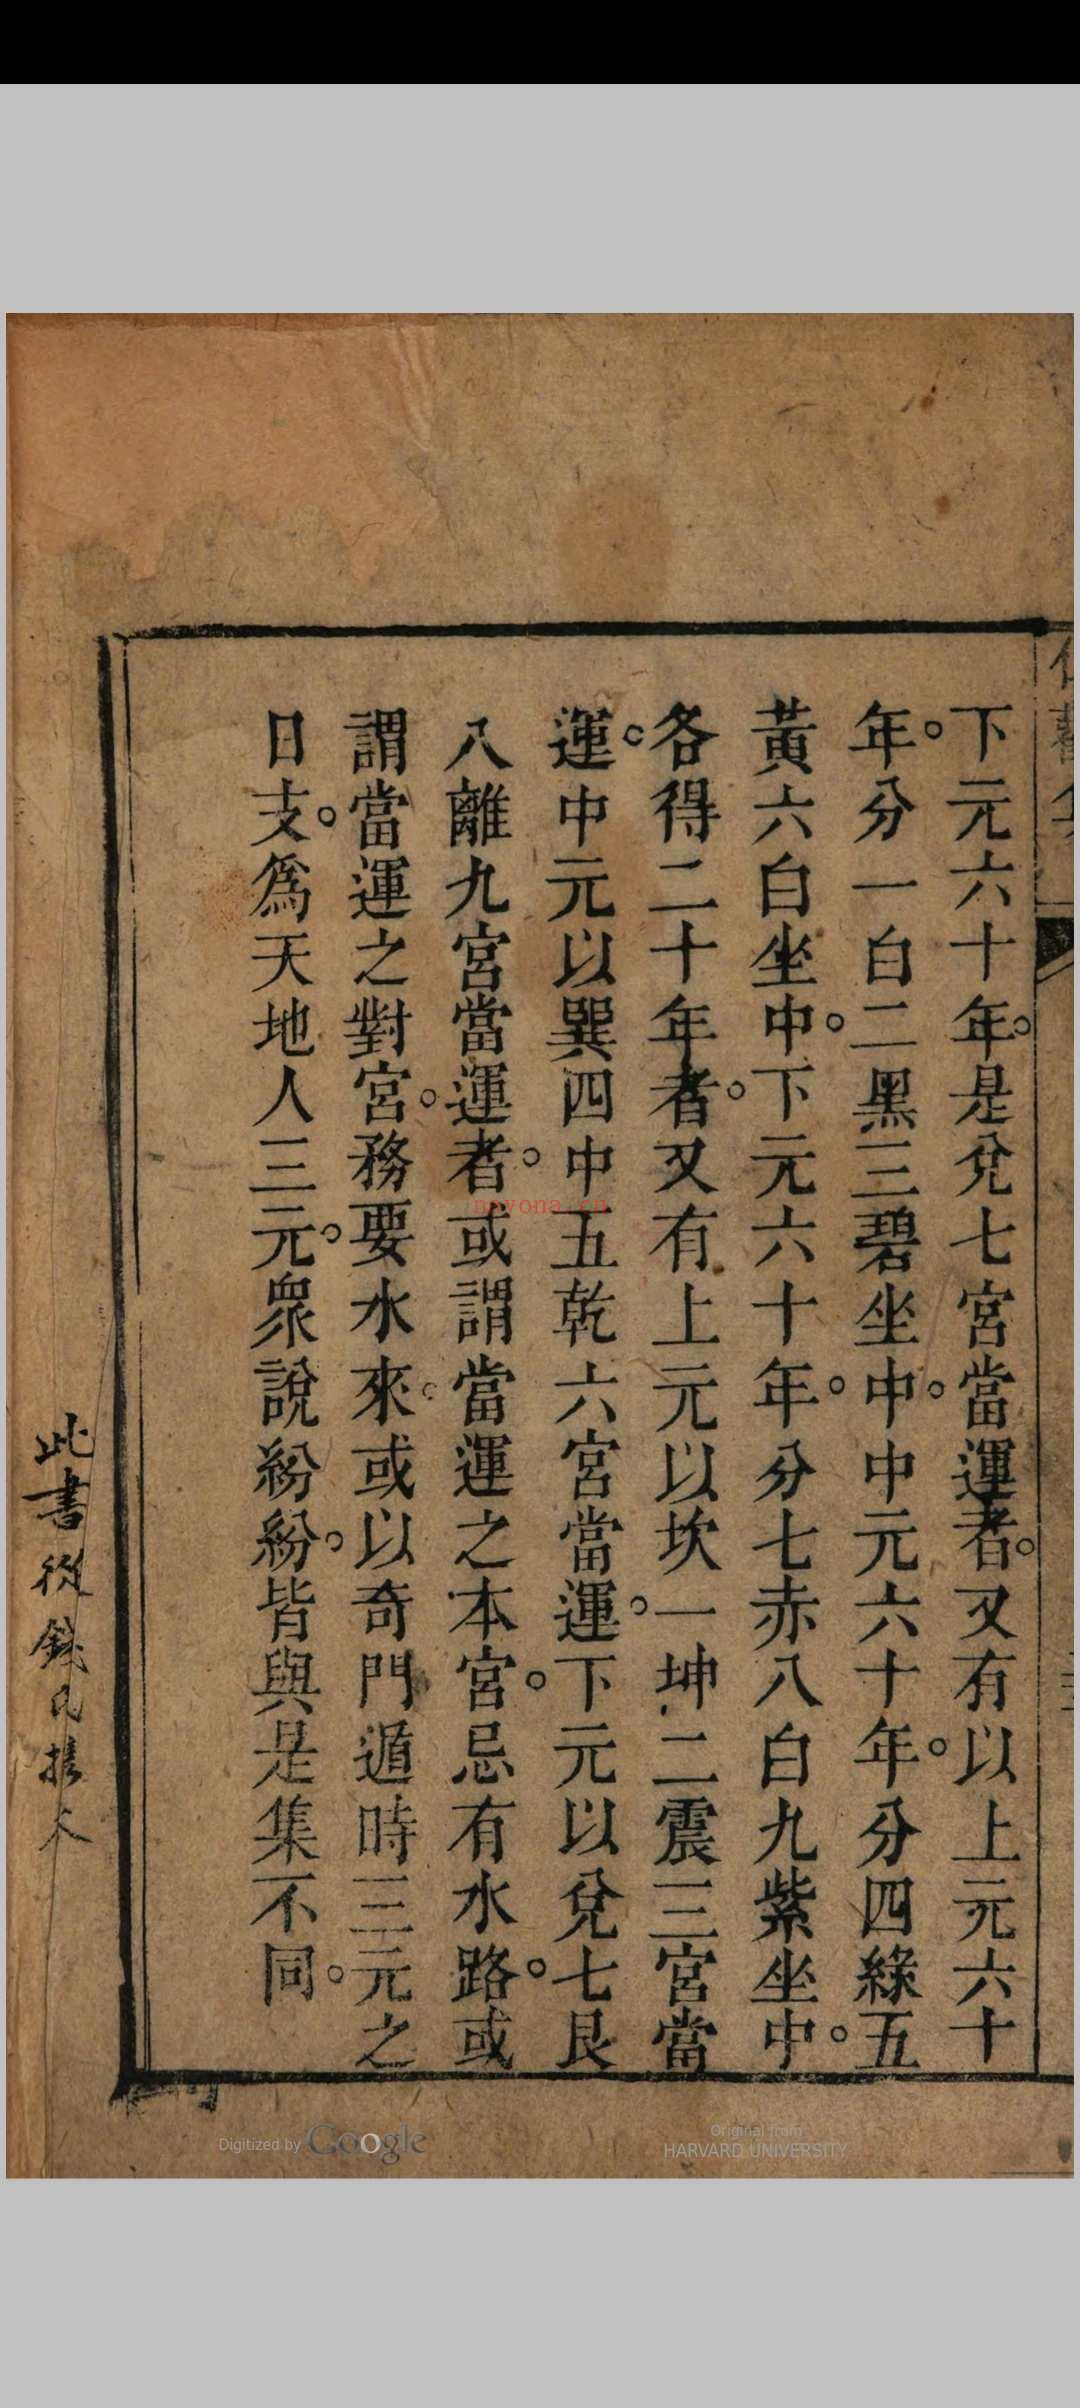 下元六十年。是兌七宮當運者。又有以上元六十
年。分一白二黑三碧坐中。中元六十年。分四綠五
黃六白坐中。下元六十年。分七赤八白九紫坐中。
各得二十年者。又有上元以坎一坤二震三宮當
運。中元以巽四中五乾六宮當運。下元以兌七艮
八離九宮當運者。或謂當運之本宮。忌有水路。或
謂當運之對宮。務要水來。或以奇門遁時三元之
日支。為天地人三元。眾說紛紛。皆與是集不同。
此書從錢氏
nayona.cn
Digitized by Google
Original from
HARVARD UNIVERSITY